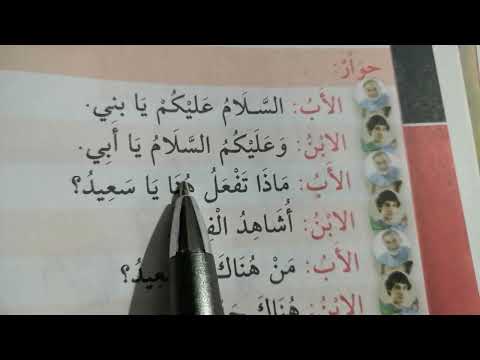 حِوَارٌ:
الأَبُ: السَّلَامُ عَلَيْكُمْ يَا بنِي.
الابْنُ: وَعَلَيْكُمُ السَّلَامُ يَا أَبِي.
الأَبُ: مَاذَا تَفْعَلُ هُنَا يَا سَعِيدُ؟
الابْنُ: أُشَاهِدُ
الأَبُ: مَنْ هُنَاكَ
الابْنُ: هُنَاكَ